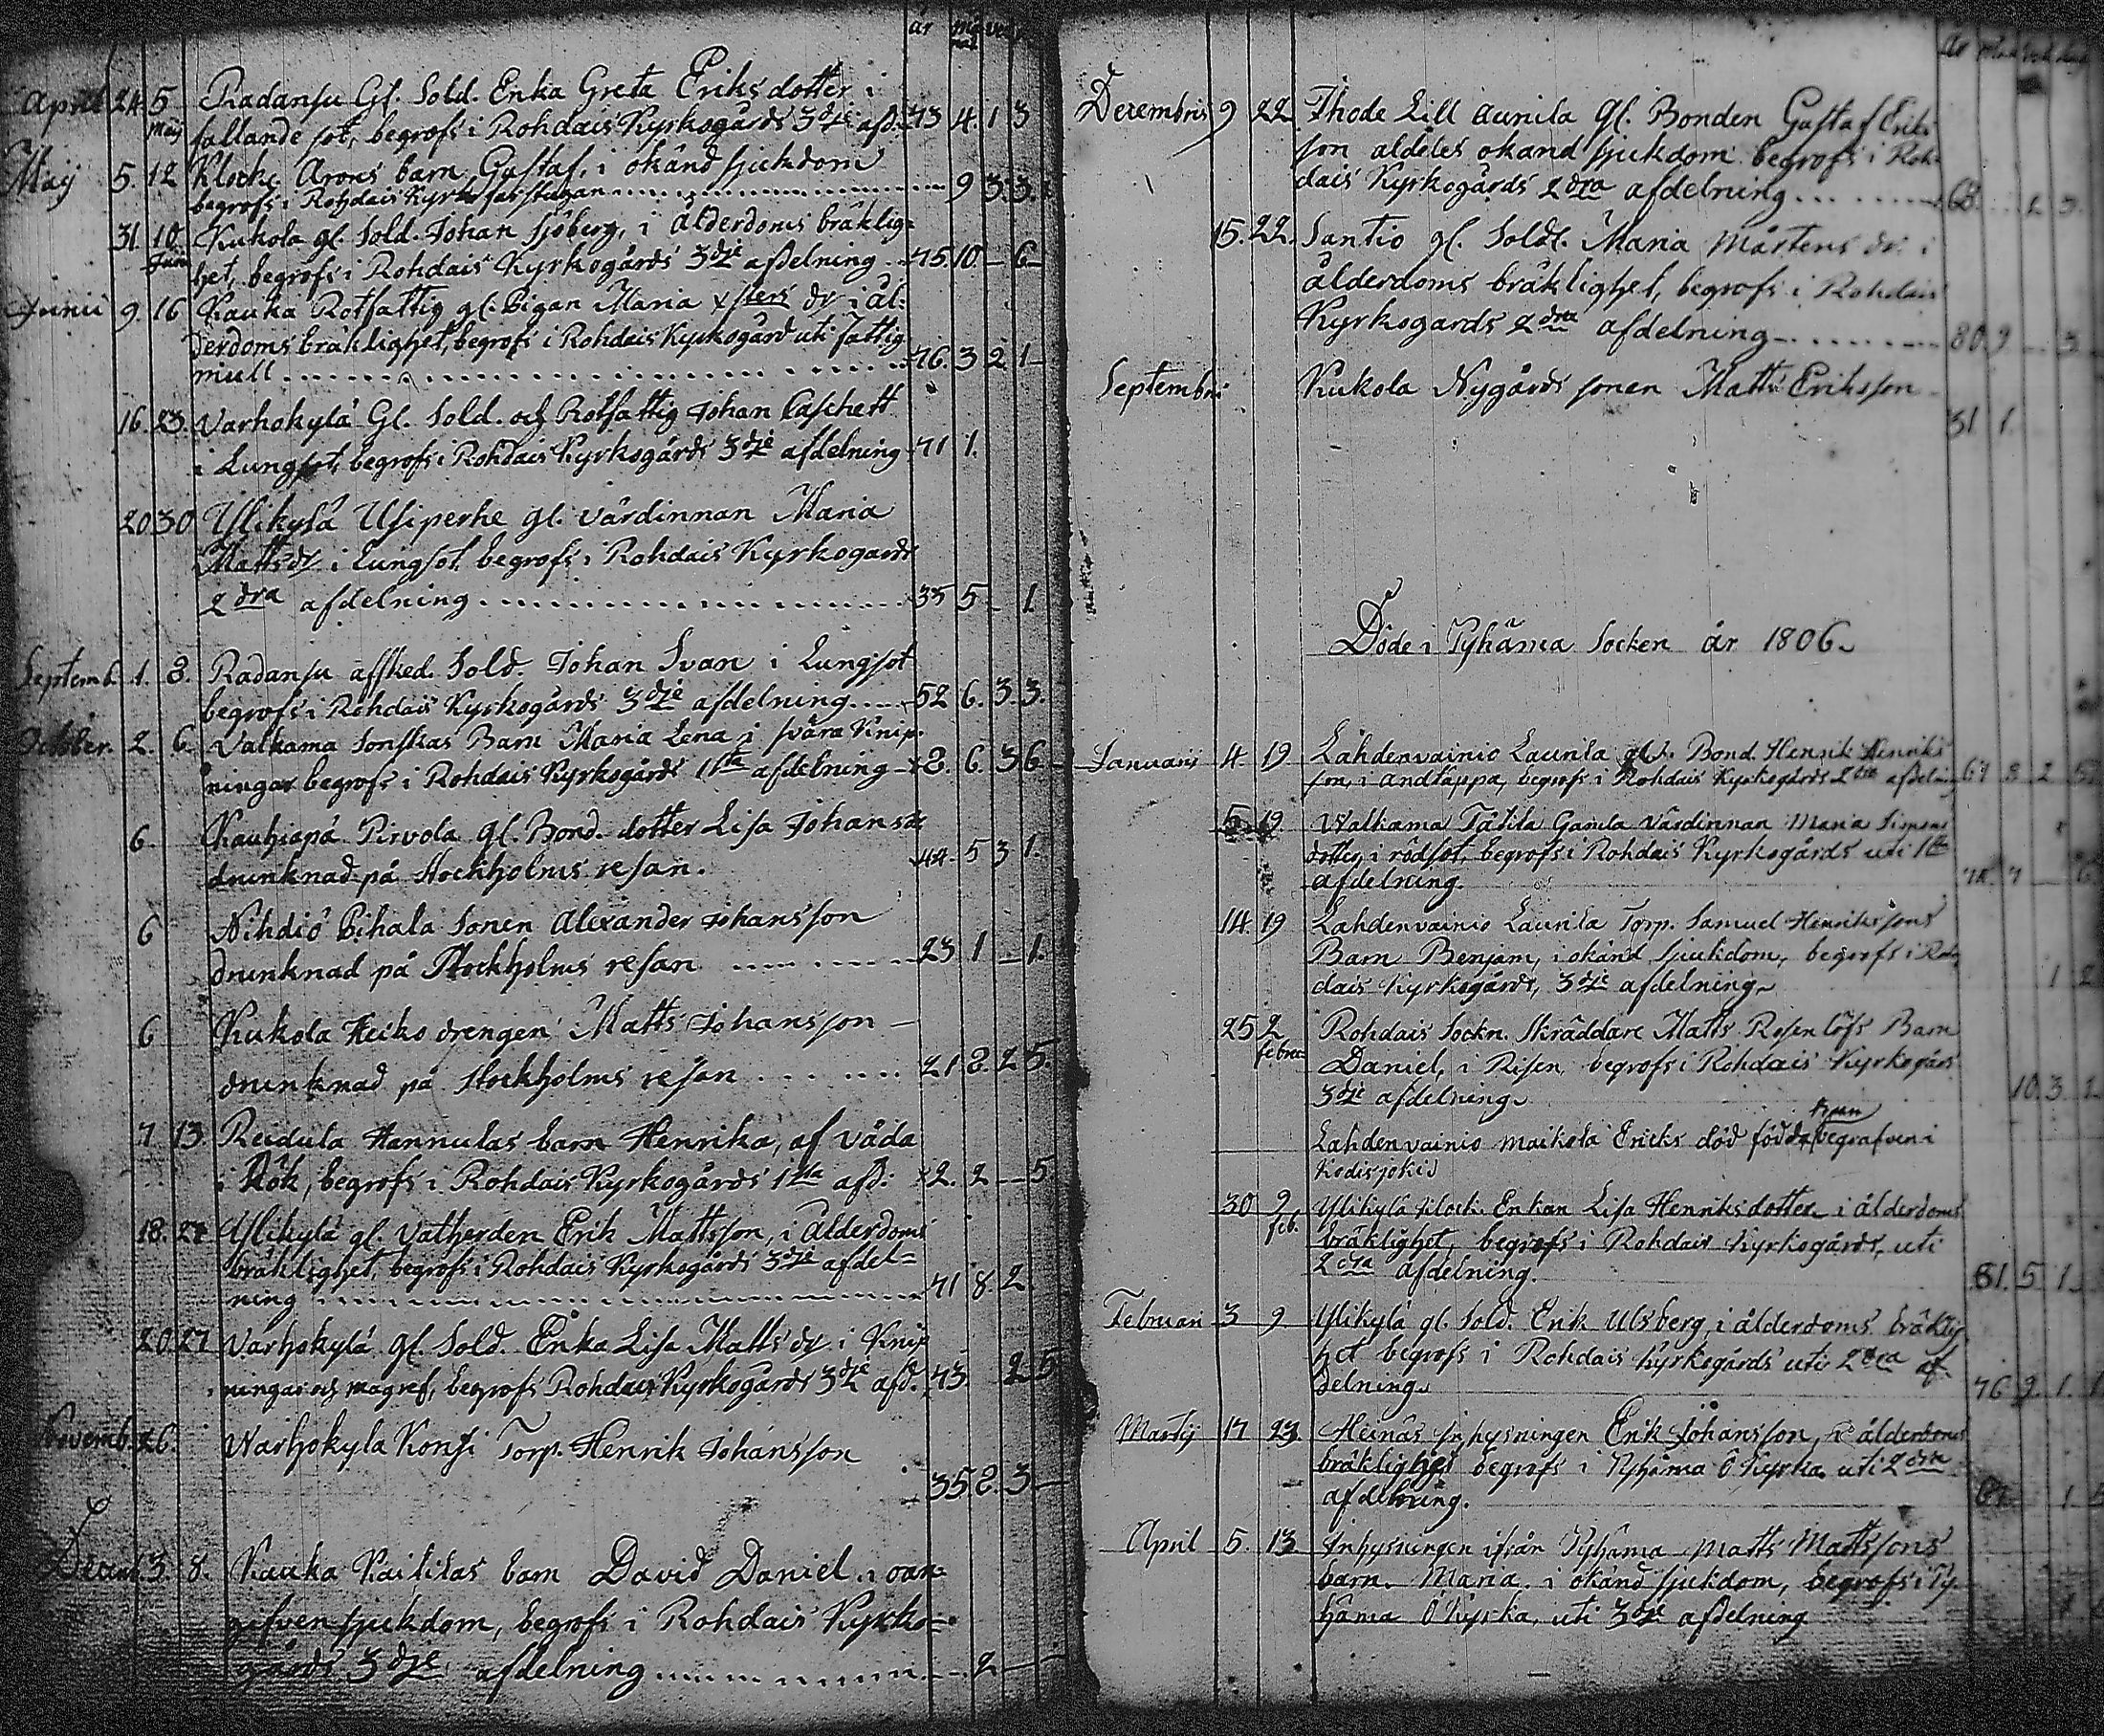 år månad veck
April 24 5 Maij Radansu Gl. Sold. Enka Greta Eriksdotter i
fallande sot, begrofs i Rohdais Kyrkogårds 3dje afd. 73 4. 1 3
Maij 5. 12 Klocke Arons barn Gustaf, i okänd sjukdom
begrofs i Rohdais Kyrko farstugan 9 3. 3.
31 10 Junii Kukola gl. Sold. Johan Sjöberg, i ålderdoms bräklig-
het, begrofs i Rohdais Kyrkogårds 3dje afdelning 75. 10 – 6
Junii 9. 16 Kauka Rotfattig gl. Pigan Maria dr i ål-
derdoms bräklighet, begrofs i Rohdais Kyrkogård uti fattig
mull 76. 3 2 1
16. 23. Varhokylä Gl. Sold. och Rotfattig Johan Caschett
i Lungsot, begrofs i Rohdais Kyrkogårds 3dje afdelning 71 1.
20 30 Ylikylä Usiperhe gl. Värdinnan Maria
Matts dr i Lungsot, begrofs i Rohdais Kyrkogårds
2dra afdelning 35 5 – 1.
Septemb. 1. 8. Radansu afsked. Sold. Johan Svan i Lungsot
begrofs i Rohdais Kyrkogårds 3dje afdelning 52 6. 3. 3.
October. 2. 6. Valkama Sonskas Barn Maria Lena i svåra Knip-
ningar begrofs i Rohdais Kyrkogårds 1sta afdelning 8. 6. 3 6
6. Kauhiapä Pirvola gl. Bond. dotter Lisa Johans dr
drunknad på Stockholms resan. 44. 5 3 1.
6 Nihdiö Pihala Sonen Alexander Johansson
drunknad på Stockholms resan 23 1 – 1.
6 Kukola Heiko drengen Matts Johansson
drunknad på Stockholms resan 21 8. 2 5.
7 13 Reidula Hannulas barn Henrika, af våda
i Rök, begrofs i Rohdais Kyrkogårds 1sta afd: 2. 2 – 5
18. 27 Ylikylä gl. Vatherden Erik Mattsson, i ålderdoms
bräklighet, begrofs i Rohdais Kyrkogårds 3dje afdel=
ning 71 8. 2.
20. 27 Varhokylä gl. Sold. Enka Lisa Matts dr i Knip
ningar och magref, begrofs Rohdais Kyrkogårds 3dje afd. 73 2 5
Novemb. 26. Warhokyla Konsi Torp. Henrik Johansson
35. 8. 3
Decemb. 3. 8. Kauka Kaitilas barn David Daniel i oan-
gifven sjukdom, begrofs i Rohdais Kyrko=
gårds 3dje afdelning 2
År
Decembris 9 22 Ihode Lill aunila gl. Bonden Gustaf Eriks
son aldeles okand sjukdom begrofs i Roh-
dais Kyrkogårds 2dra afdelning 68. 1. 3.
15. 22. Santio gl. Soldt. Maria Mårtens dr. i
ålderdoms bräklighet, begrofs i Rohdais
Kyrkogards 2dra afdelning 80 9 – 3
Septembri Kukola Nygårds sonen Matts Eriksson
31 1.
Döde i Pyhäma Socken år 1806.
Januarij 4 19 Lahdenvainio Launila gl. Bond. Henrik Henriks
son, i andtäppa, begrofs i Rohdais Kyrkogårds 2dra afdeln 67 8 2 5
5 19 Walkama Tätila Gamla värdinnan Maria Simons
dotter, i rödsot, begrofs i Rohdais Kyrkogårds uti 1sta
afdelning. 7
14. 19 Lahdenvainio Launila Torp. Samuel Henrikssons
Barn Benjam, i okänd sjukdom, begrofs i Roh
dais Kyrkogårds, 3dje afdelning. 1 2
25 2 febru Rohdais Sockn. Skräddare Matts Rosen löfs Barn
Daniel, i Risen begrofs i Rohdais Kyrkogårds
3dje afdelning. 10. 3 2
Lahdenvainio Maikola Ericks död född begrafven i
Kodisjoki
30 9 feb. Ylikylä Enkan Lisa Henriksdotter i ålderdoms
bräklighet, begrofs i Rohdais Kyrkogårds, uti
2dra afdelning. 81. 5 1.
Februari 3 9 Ylikylä gl. Sold. Erik Ulsberg, i ålderdoms bräklig
het begrofs i Rohdais Kyrkogårds uti 2dra af-
delning. 76 9. 1. 1
Martij 17 23 Heinäs Inhysningen Erik Johansson, i ålderdoms
bräklighet begrofs i Pyhäma Ö Kyrka uti 2dra
afdelning. 1 5
April 5. 13 Inhysningen ifrån Pyhäma Matts Mattssons
barn. Maria. i okänd sjukdom, begrofs i Py
häma Ö Kyrka, uti 3dje afdelning